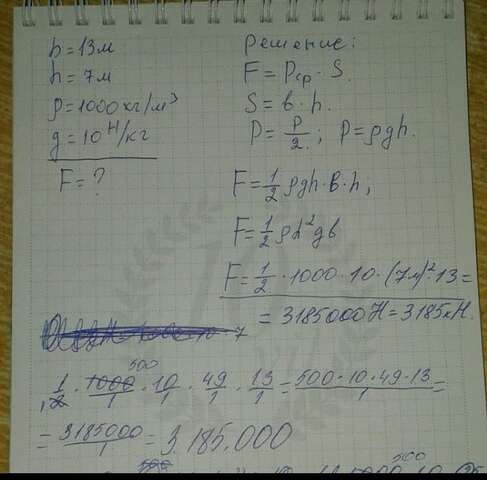 b = 13м
h = 7м
ρ = 1000 кг/м³
g = 10 Н/кг
F = ?
Решение:
F = Pср · S.
S = b · h.
P = P/2.; P = ρgh.
F = 1/2 ρgh · b · h;
F = 1/2 ρh²gb
F = 1/2 · 1000 · 10 · (7м)² · 13 =
= 3185000 Н = 3185 кН.
500
1/2 · 1000/1 · 10/1 · 49/1 · 13/1 = 500 · 10 · 49 · 13/1 =
= 3185000/1 = 3.185.000
500